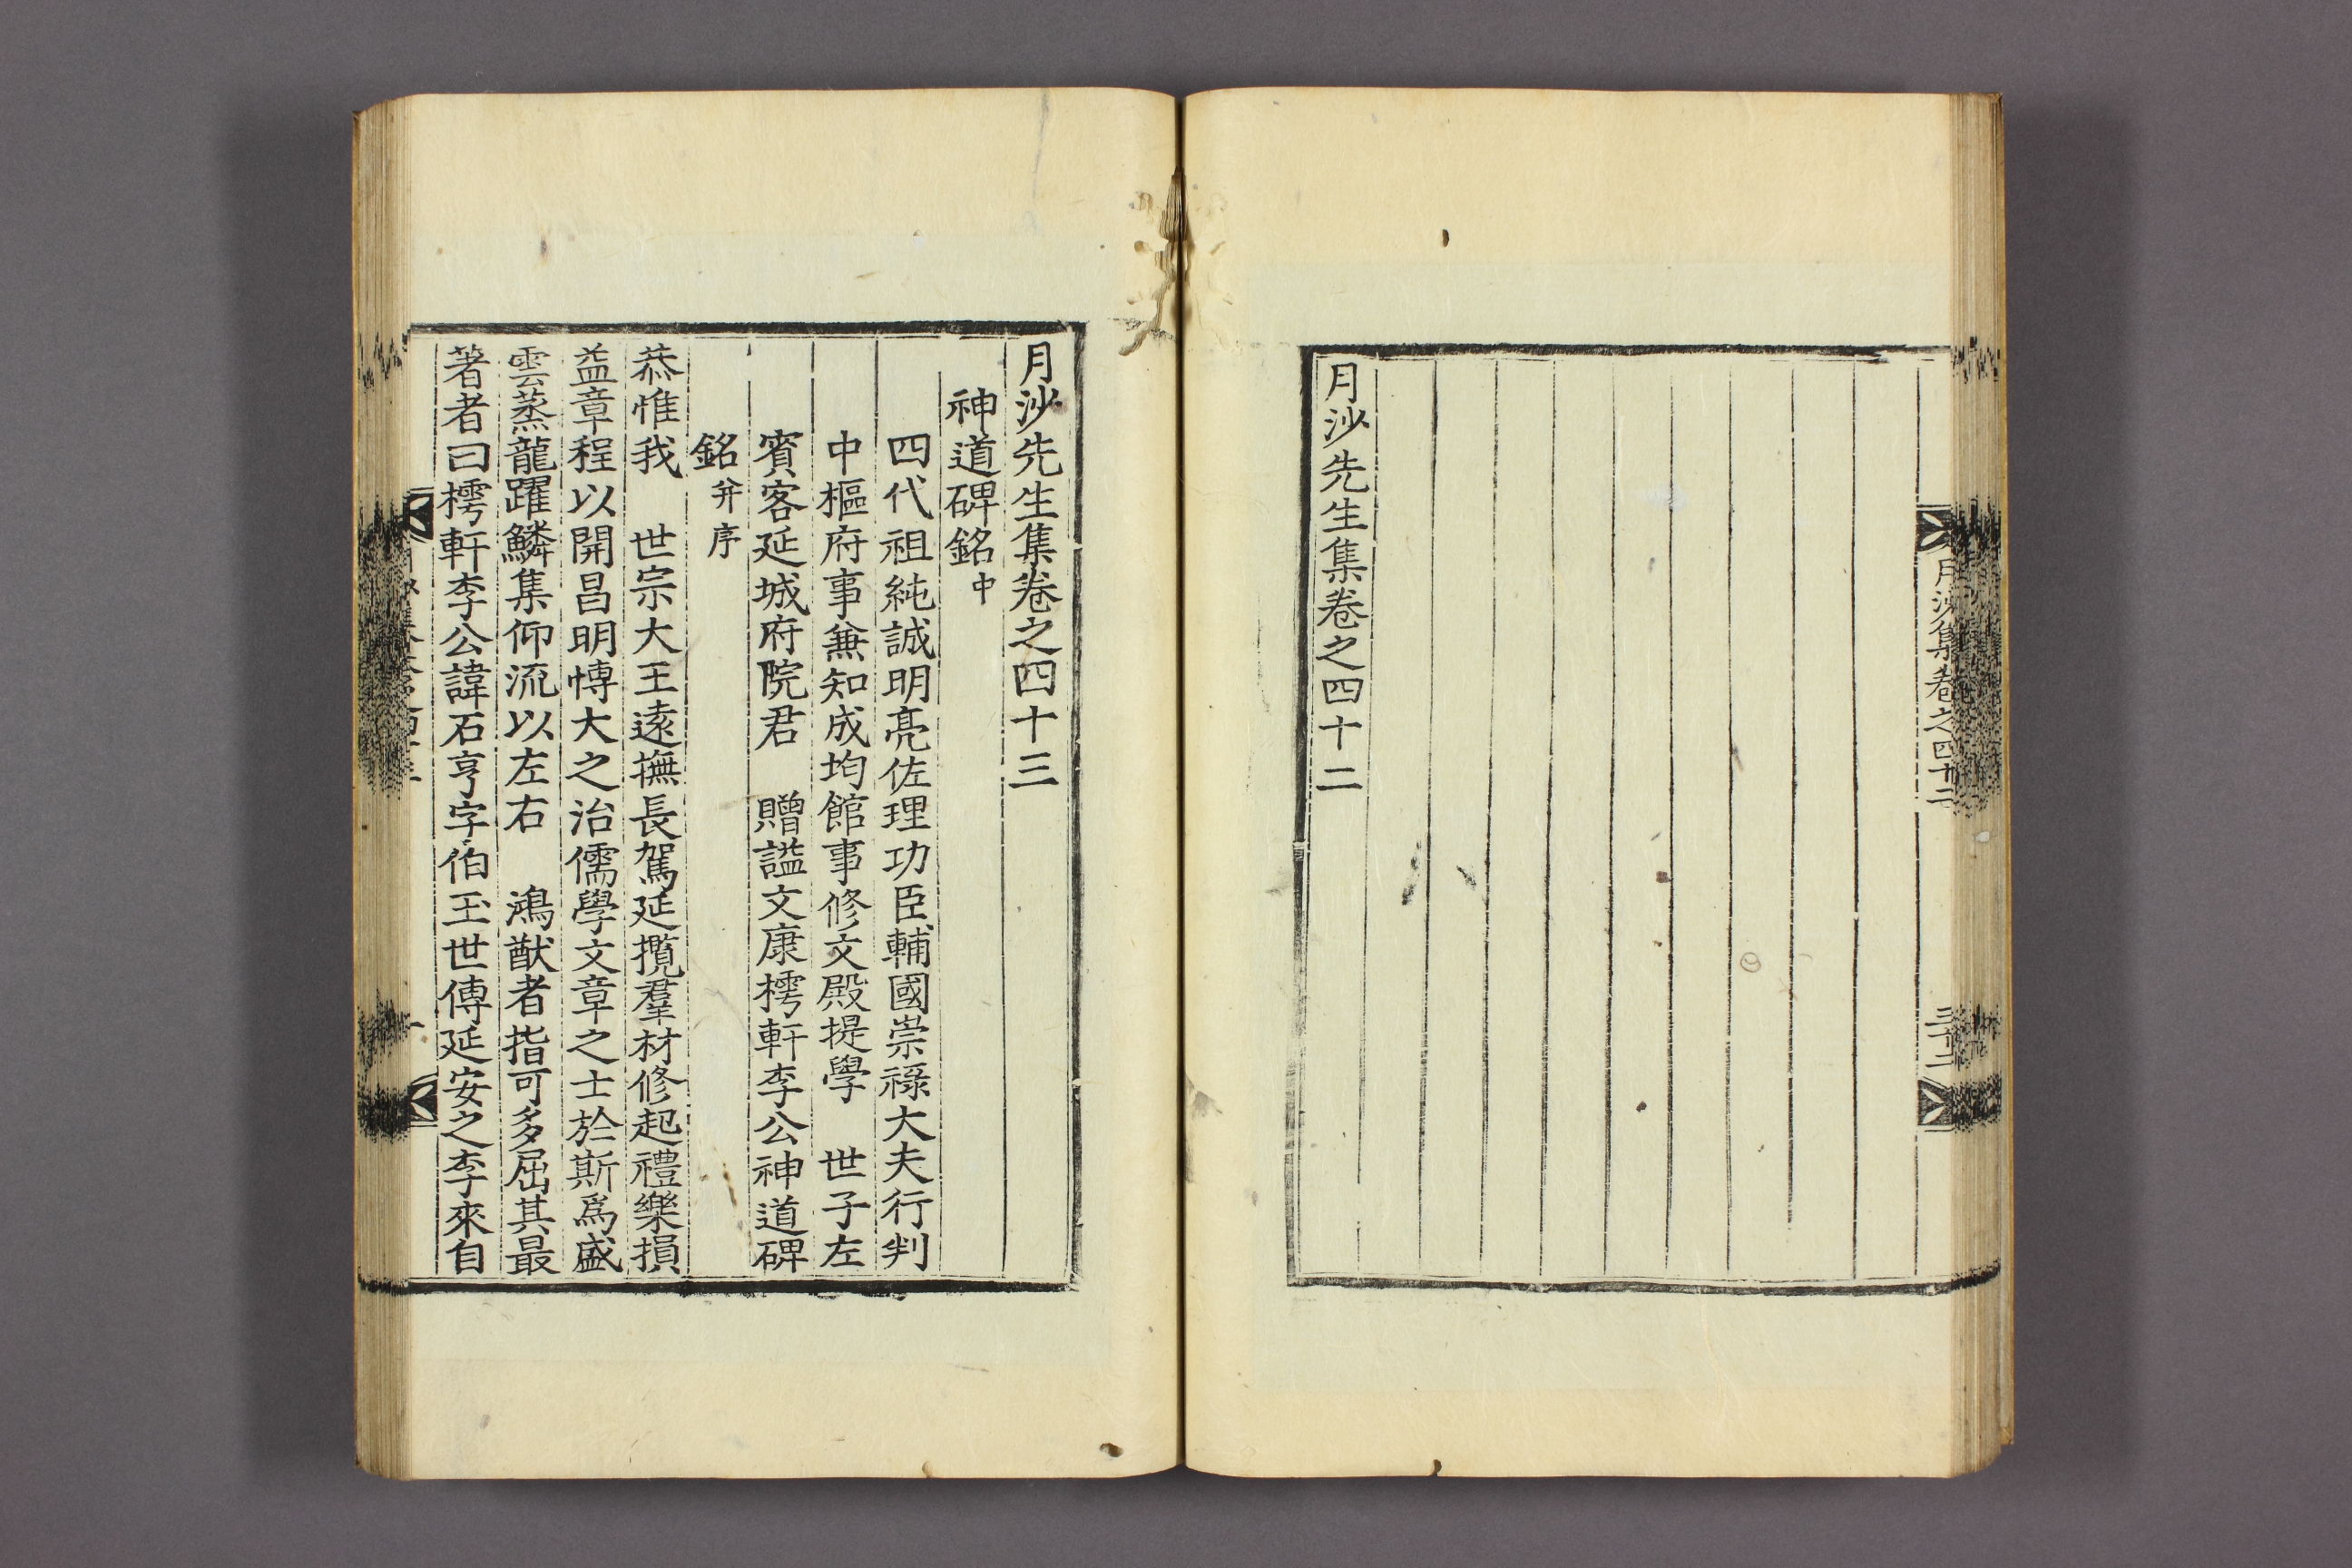 月沙集卷之四十二
三十二
月沙先生集卷之四十二
月沙先生集卷之四十三
神道碑銘中
四代祖純誠明亮佐理功臣輔國崇祿大夫行判
中樞府事兼知成均館事修文殿提學 世子左
賓客延城府院君 贈謚文康樗軒李公神道碑
銘幷序
恭惟我 世宗大王遠撫長駕延攬羣材修起禮樂損
益章程以開昌明愽大之治儒學文章之士於斯爲盛
雲蒸龍躍鱗集仰流以左右 鴻猷者指可多屈其最
著者曰樗軒李公諱石亨字伯玉世傳延安之李來自